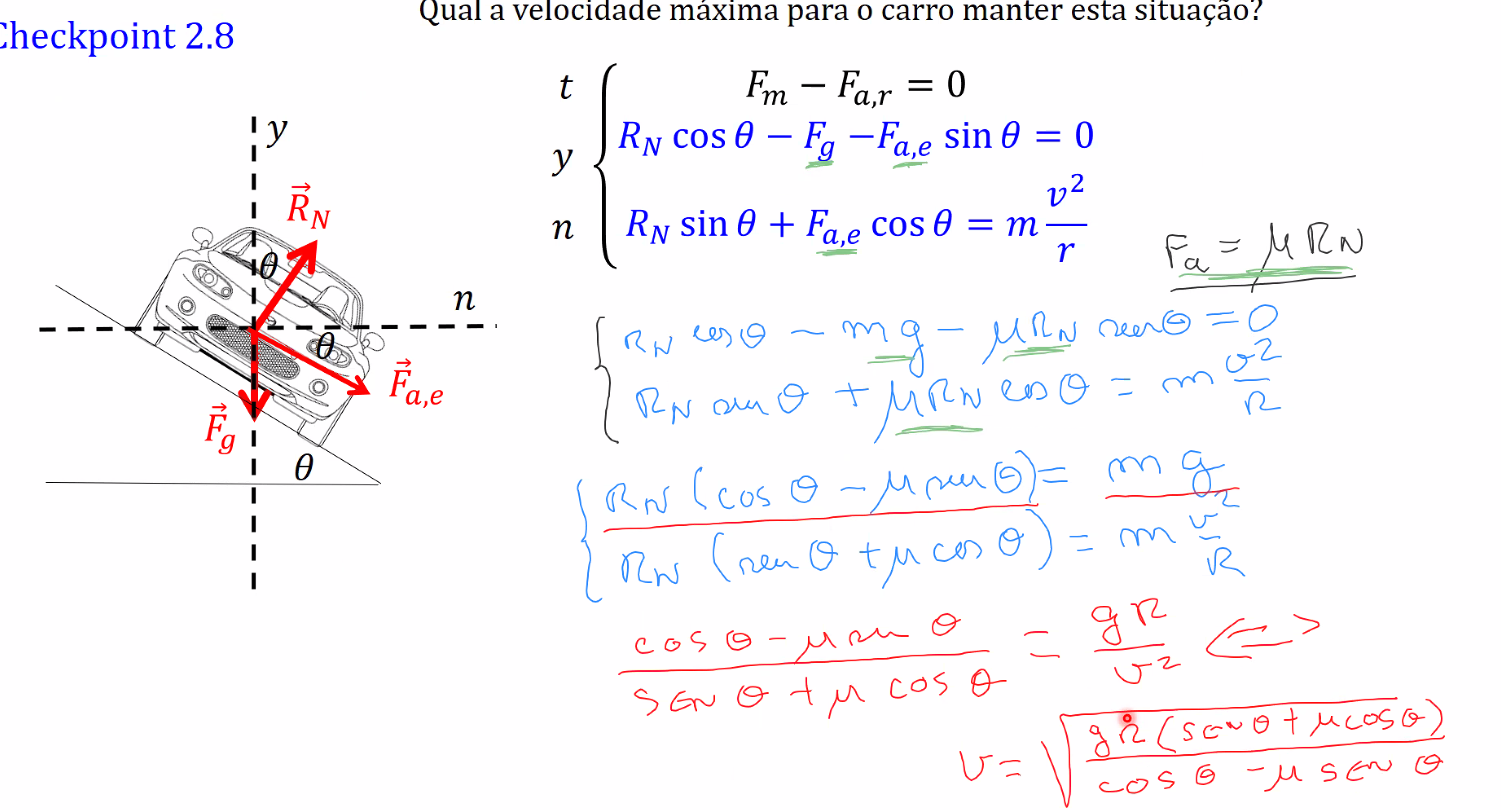 Qual a velocidade máxima para o carro manter esta situação?
Checkpoint 2.8
t F_m − F_{a,r} = 0
y R_N cos θ − F_g − F_{a,e} sin θ = 0
n R_N sin θ + F_{a,e} cos θ = m v²/r
y
R⃗_N
θ
n
θ
F⃗_{a,e}
F⃗_g
θ
F_a = μ R_N
R_N cos θ − m g − μ R_N sen θ = 0
R_N sen θ + μ R_N cos θ = m v²/R
R_N (cos θ − μ sen θ) = m g
R_N (sen θ + μ cos θ) = m v²/R
(cos θ − μ sen θ)/(SEN θ + μ cos θ) = gR/v² <=>
v = √(gR (SEN θ + μ cos θ)/(cos θ − μ SEN θ))